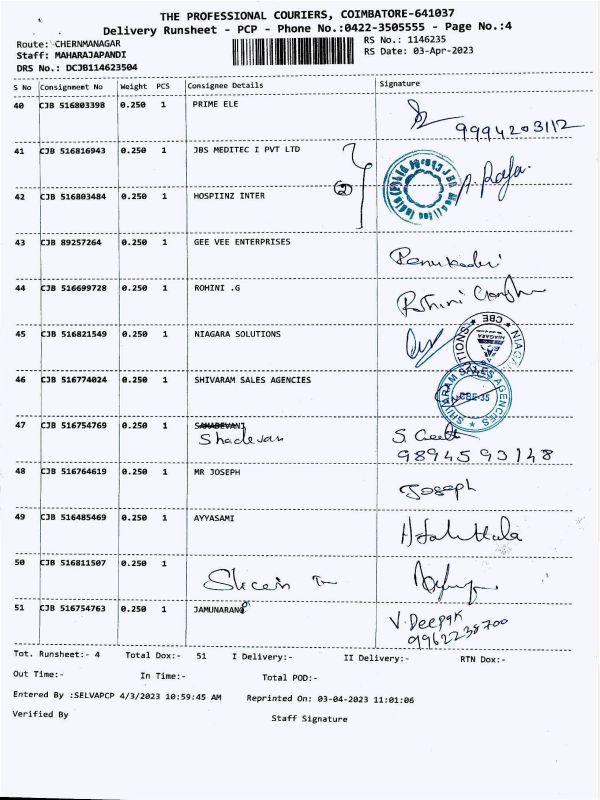 THE PROFESSIONAL COURIERS, COIMBATORE-641037
Delivery Runsheet - PCP - Phone No.:0422-3505555 - Page No.:4
Route: CHERNMANAGAR
RS No.: 1146235
Staff: MAHARAJAPANDI
RS Date: 03-Apr-2023
DRS No.: DCJB114623504
S No Consignment No Weight PCS Consignee Details Signature
40 CJB 516803398 0.250 1 PRIME ELE
9994203112
41 CJB 516816943 0.250 1 JBS MEDITEC I PVT LTD
A. Raja.
42 CJB 516803484 0.250 1 HOSPIINZ INTER 2
43 CJB 89257264 0.250 1 GEE VEE ENTERPRISES
44 CJB 516699728 0.250 1 ROHINI .G
Rohini
45 CJB 516821549 0.250 1 NIAGARA SOLUTIONS
NIAGARA CBE
46 CJB 516774024 0.250 1 SHIVARAM SALES AGENCIES
SHIVARAM SALES AGENCIES CBE-35
47 CJB 516754769 0.250 1 SAHADEVAN
Shadevan
9894593148
48 CJB 516764619 0.250 1 MR JOSEPH
Joseph
49 CJB 516485469 0.250 1 AYYASAMI
50 CJB 516811507 0.250 1
51 CJB 516754763 0.250 1 JAMUNARANI
V. Deepak
9962238700
Tot. Runsheet:- 4 Total Dox:- 51 I Delivery:- II Delivery:- RTN Dox:-
Out Time:- In Time:- Total POD:-
Entered By :SELVAPCP 4/3/2023 10:59:45 AM Reprinted On: 03-04-2023 11:01:06
Verified By Staff Signature